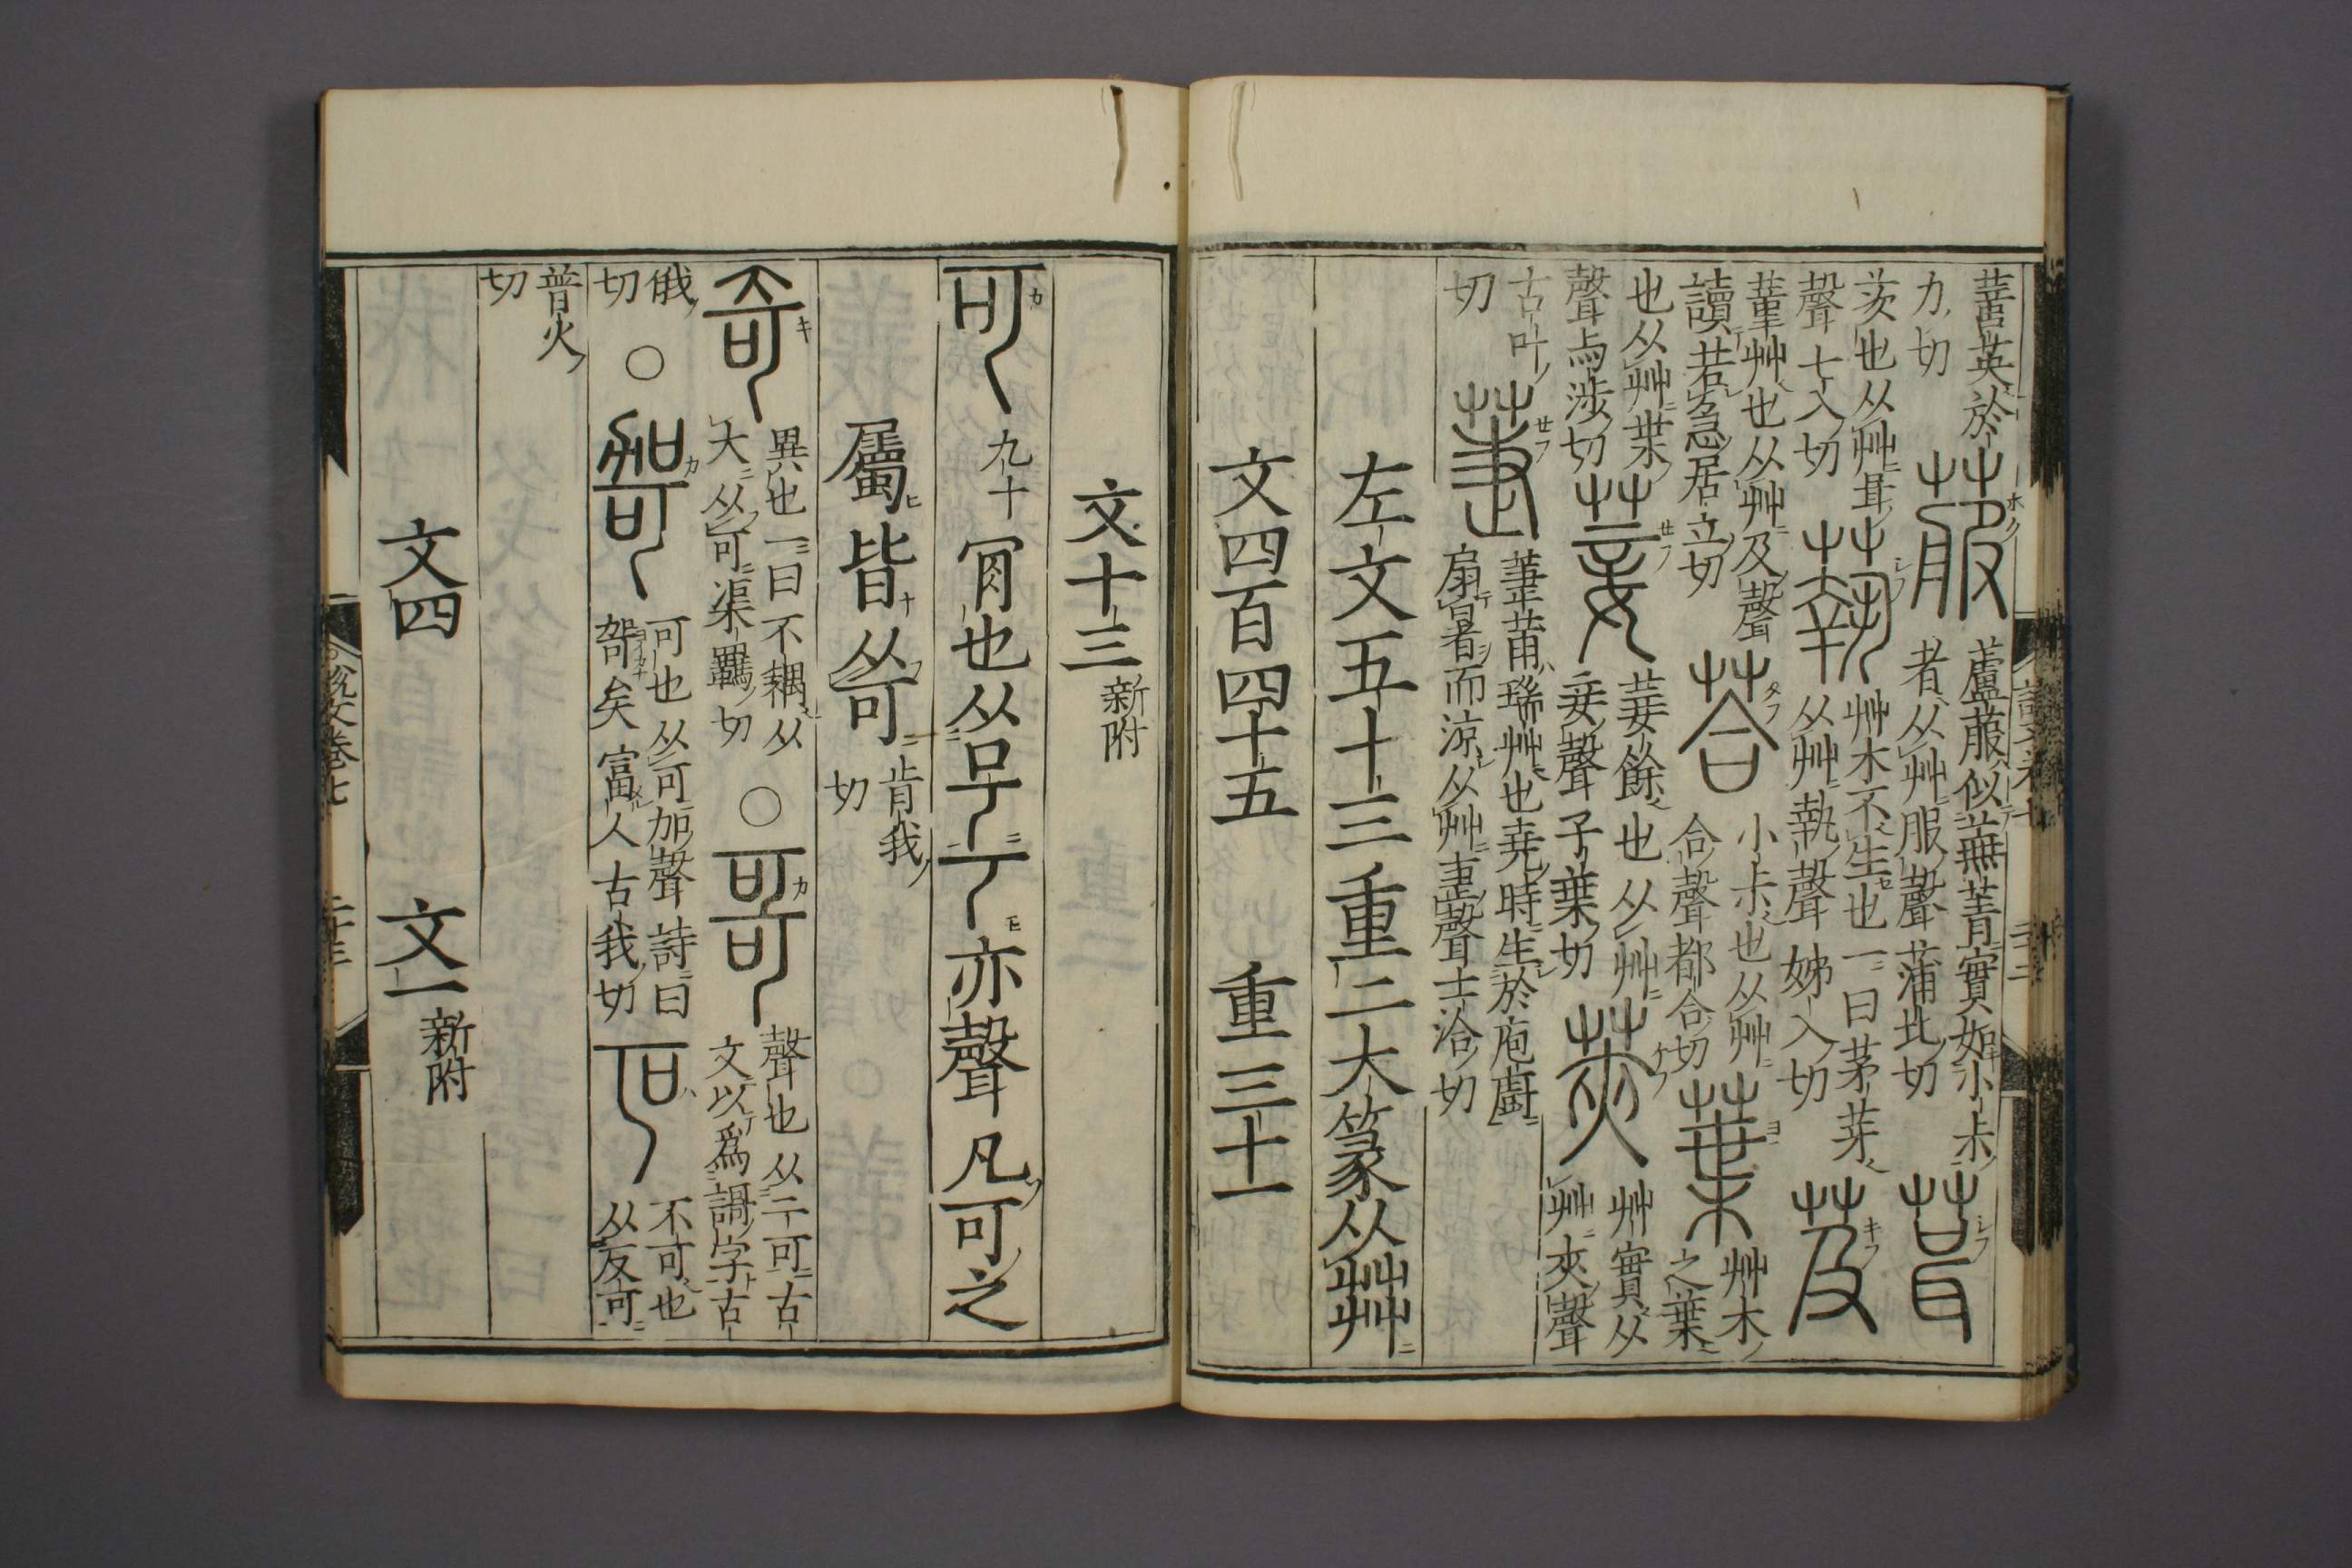 英於力切 菔 蘆菔似蕪菁實如小尗者从艸服聲蒲北切 葺
茨也从艸咠聲七入切 蓻 艸木不生也一曰茅芽从艸執聲姊入切 芨
菫艸也从艸及聲讀若急居立切 荅 小尗也从艸合聲都合切 葉 艸木之葉
也从艸枼聲与涉切 菨 菨餘也从艸妾聲子葉切 莢 艸實从艸夾聲
古叶切 萐 萐莆瑞艸也堯時生於庖廚扇暑而涼从艸疌聲士洽切
左文五十三重二大篆从茻
文四百四十五 重三十一
文十三 新附
可 九十 肎也从口丂丂亦聲凡可之
屬皆从可 肯我切
奇 異也一曰不耦从大从可渠羈切 ○ 哥 聲也从二可古文以爲謌字古
俄切 ○ 哿 可也从可加聲詩曰哿矣富人古我切 叵 不可也从反可
普火切
文四 文一 新附
說文卷七 二十三